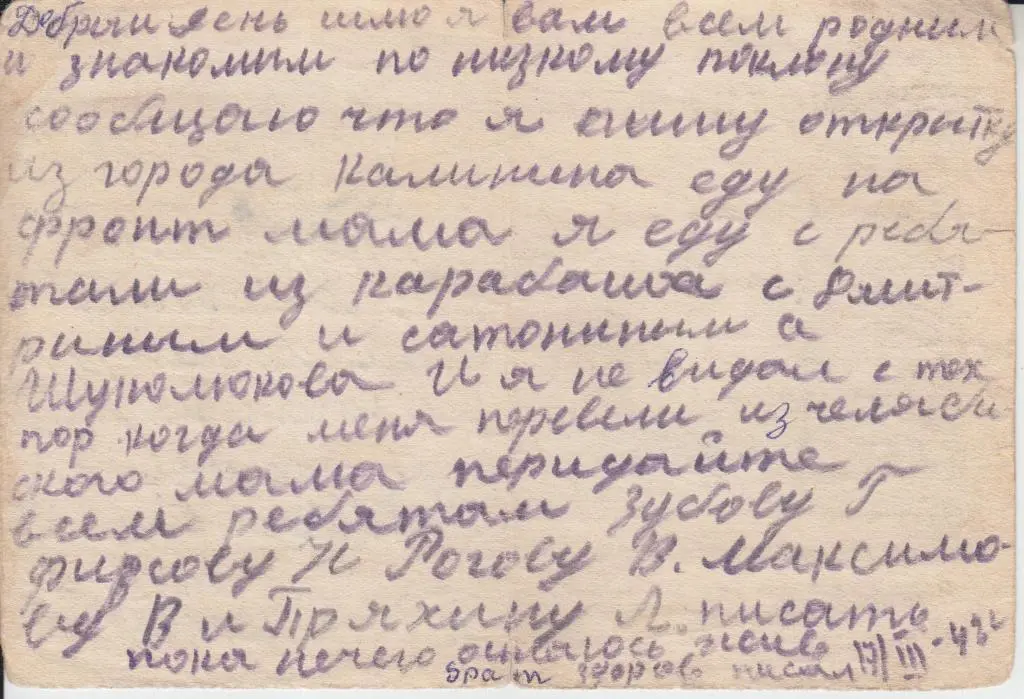 Добрый день шлю я вам всем родным
и знакомым по низкому поклону
сообщаю что я пишу открытку
из города Калинина еду на
фронт мама я еду с ребя-
тами из карабаша с Дмит-
риным и сатониным а
Шупомюкова И я не видал с тех
пор когда меня перевели из челяб
ского мама перидайте
всем ребятам Зубову Г
фирсову Н Рогову В. Максимо-
ву В и Пряхину Л. писать
пока нечего остаюсь жив
брат здоров писал 17/III-43г